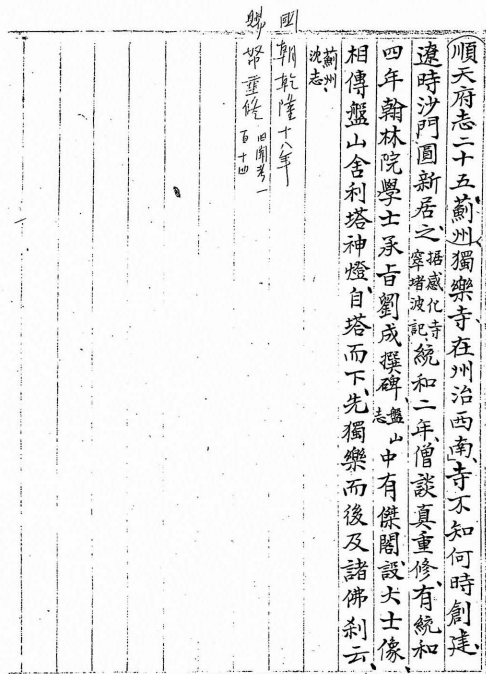 順天府志二十五、薊州獨樂寺、在州治西南、寺不知何時創建、
遼時沙門圓新居之、据感化寺窣堵波記、統和二年、僧談真重修、有統和
四年翰林院學士承旨劉成撰碑、盤山志中有傑閣、設大士像、
相傳盤山舍利塔神燈、自塔而下、先獨樂而後及諸佛刹云、
薊州沈志
國朝乾隆十八年
帑重修 旧聞考一百十四